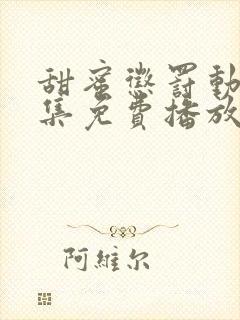 甜蜜懲罰動
集免費播放
阿維尔